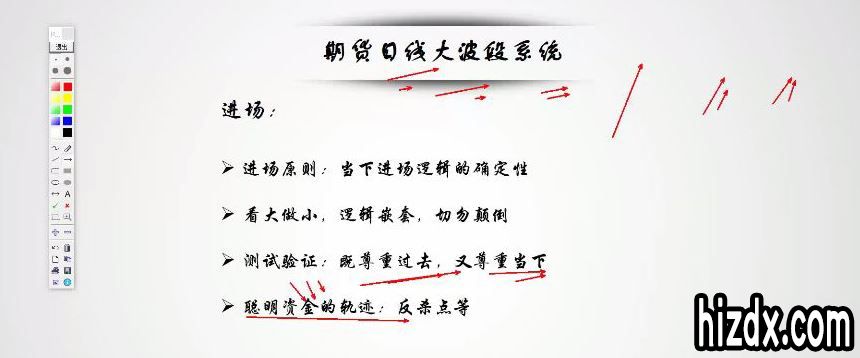 期货日线大波段系统
退出
进场：
➢ 进场原则：当下进场逻辑的确定性
➢ 看大做小，逻辑嵌套，切勿颠倒
➢ 测试验证：既尊重过去，又尊重当下
➢ 聪明资金的轨迹：反杀点等
A
hizdx.com